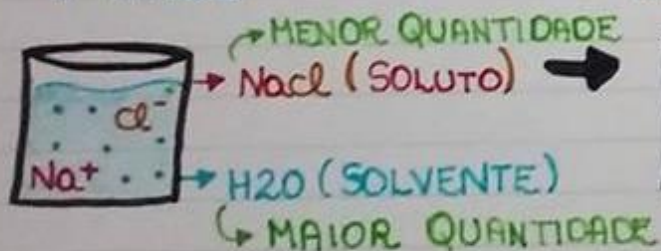 MENOR QUANTIDADE
NaCl (SOLUTO)
Cl⁻
Na⁺
H2O (SOLVENTE)
MAIOR QUANTIDADE